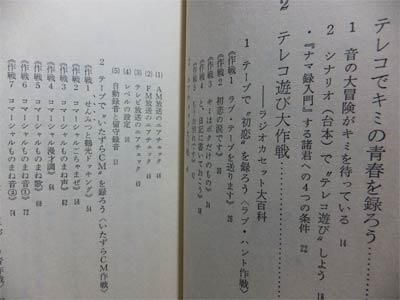 テレコでキミの青春を録ろう……
1 音の大冒険がキミを待っている 14
2 シナリオ〈台本〉で〝テレコ遊び〟しよう
・『ナマ録入門』する諸君への4つの条件
2 テレコ遊び大作戦
——ラジオカセット大百科
1 テープで〝初恋〟を録ろう〈ラブ・ハント作戦〉
《作戦1 ラブ・テープを送ります》
《作戦2 初恋の涙です》
と、日記に書いておこう》
(1) AM放送のエアチェック
(2) FM放送のエアチェック
(3) テレビ放送のエアチェック
(4) レベルの設定
(5) 自動録音と留守録音
2 テープで〝いたずらCM〟を録ろう〈いたずらCM作戦〉
《作戦1 せんべつと鶴光ドッキング》
《作戦2 コマーシャルごちゃまぜ》
《作戦3 コマーシャルものまね声》
《作戦4 コマーシャル漫才調》
《作戦5 コマーシャルものまね歌》
《作戦6 コマーシャルものまね音①》
《作戦7 コマーシャルものまね音②》